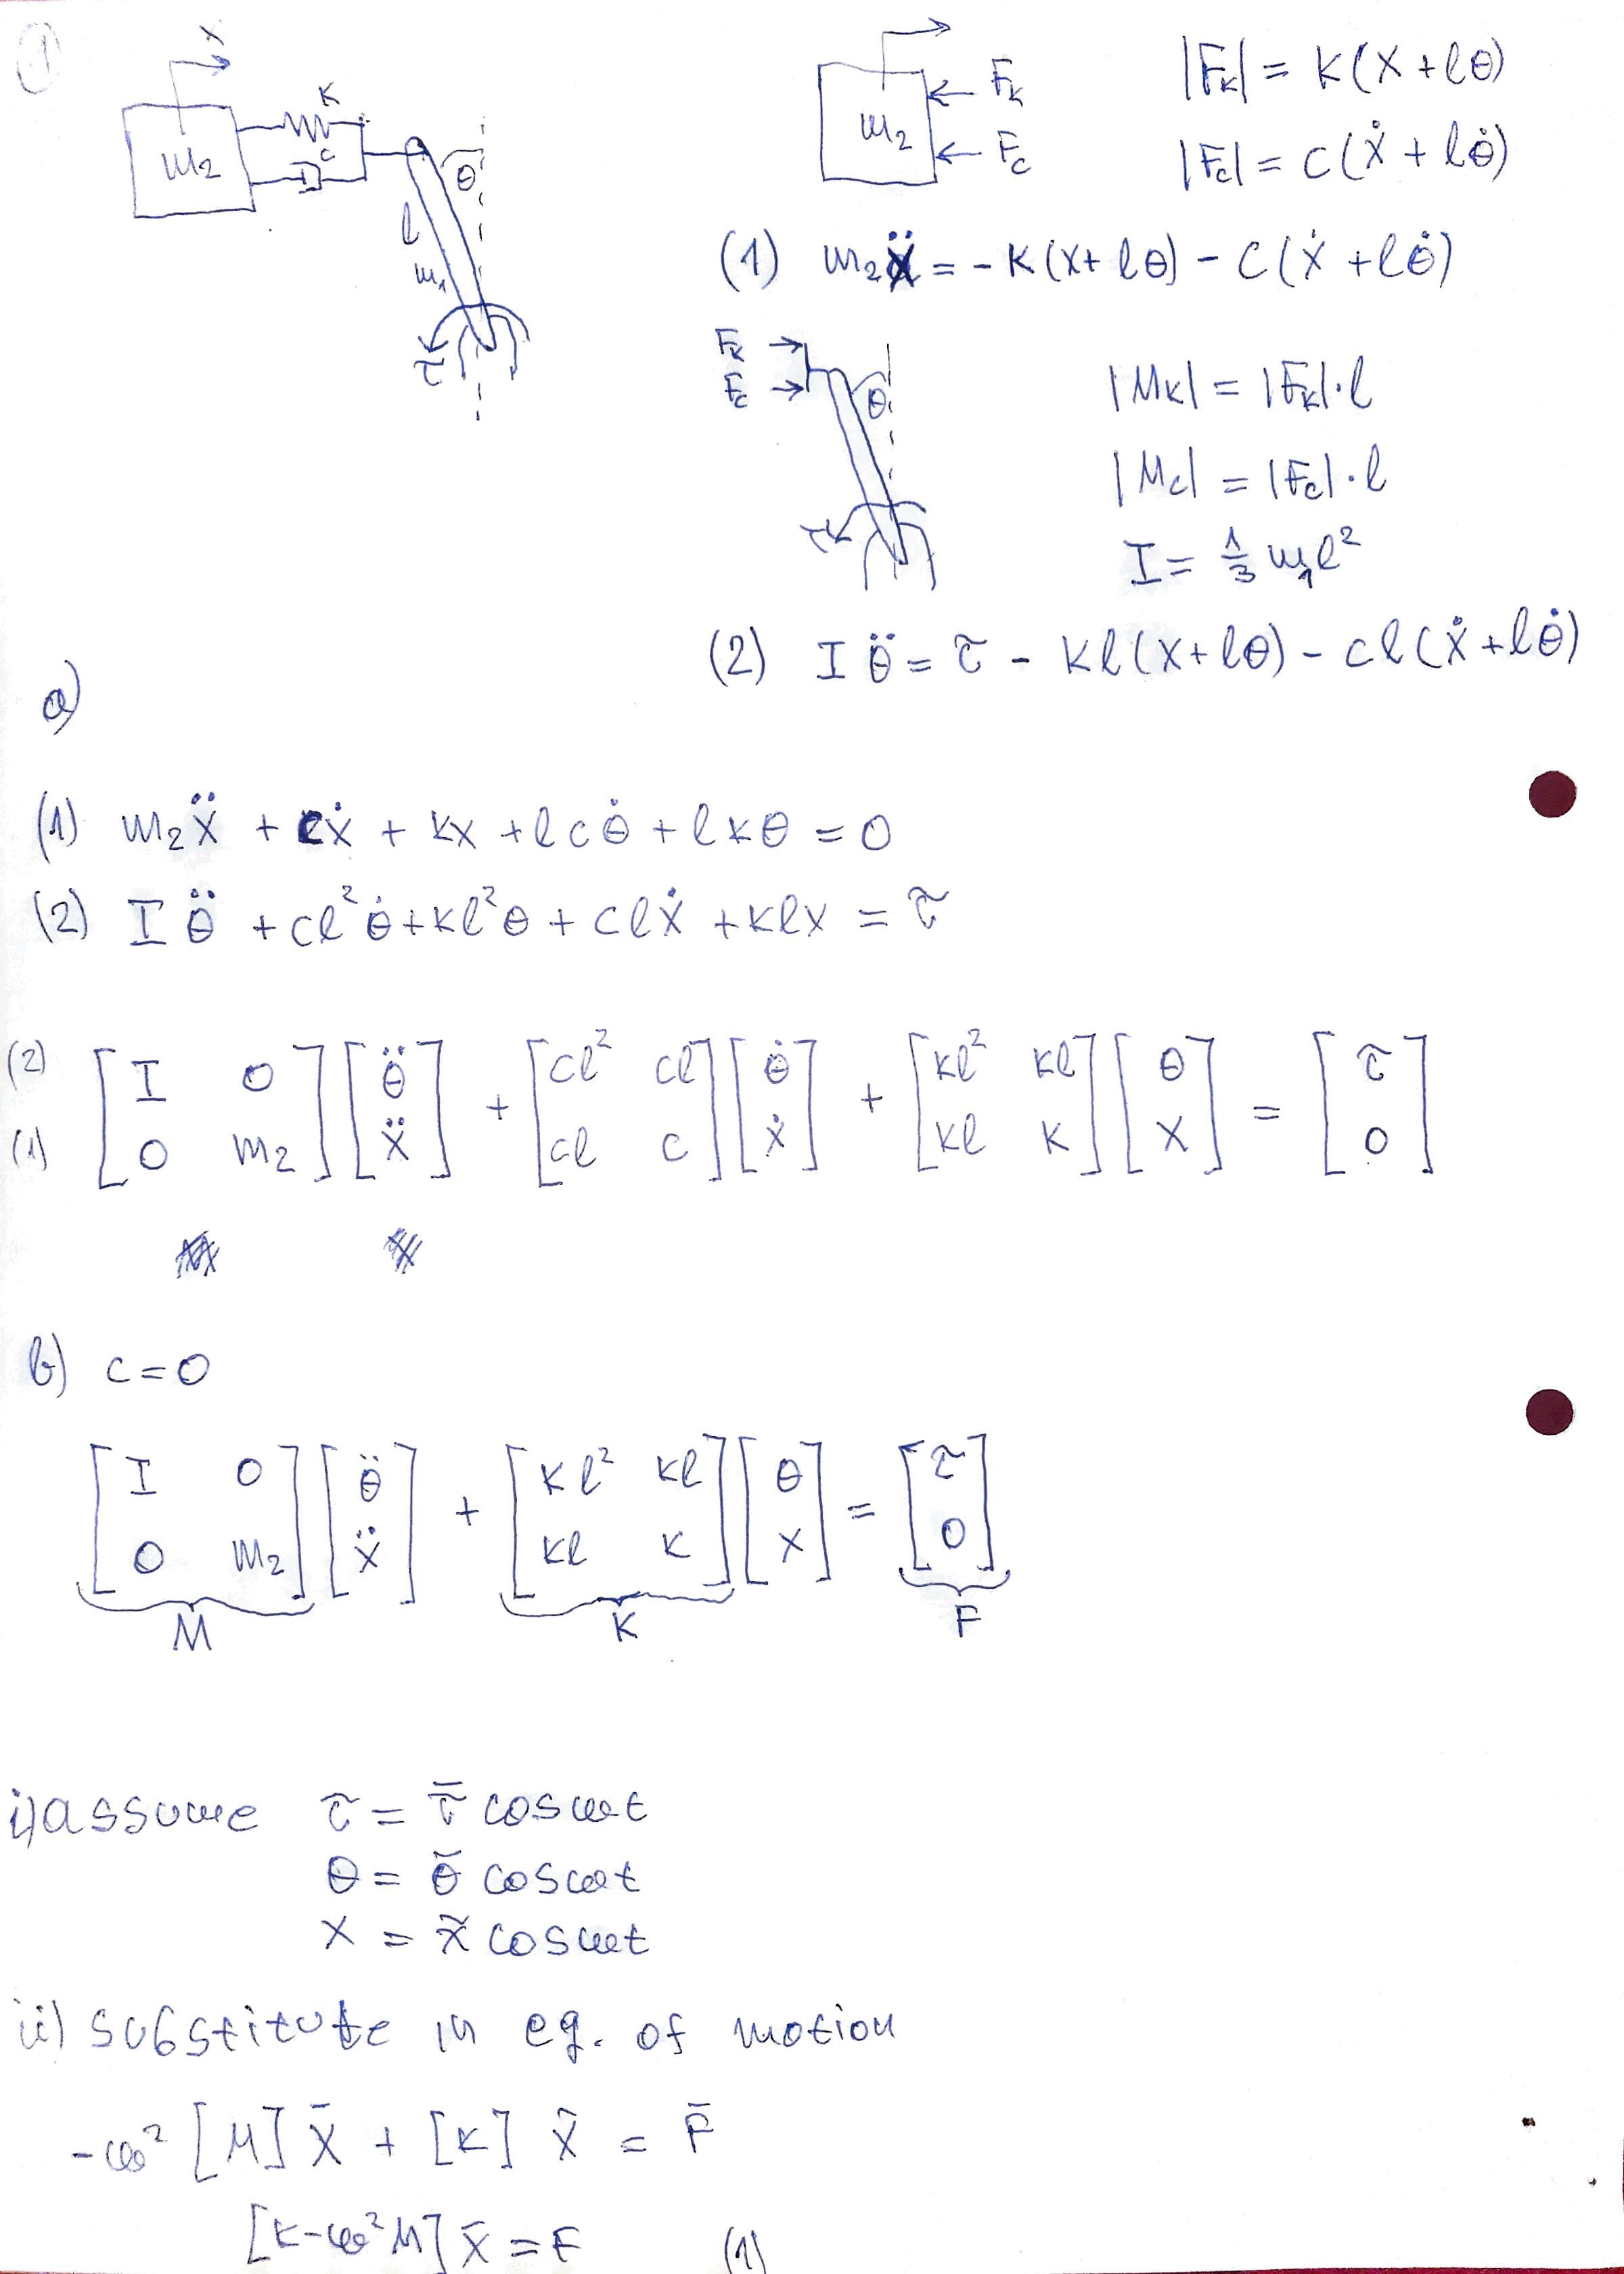 1
x
K
m₂
c
θ
l
m₁
τ
m₂
F_K
F_c
|F_K| = K(x + lθ)
|F_c| = c(ẋ + lθ̇)
(1) m₂ẍ = - K(x + lθ) - c(ẋ + lθ̇)
F_K
F_c
θ
τ
|M_K| = |F_K|·l
|M_c| = |F_c|·l
I = 1/3 m₁l²
(2) I θ̈ = τ - Kl(x + lθ) - cl(ẋ + lθ̇)
a)
(1) m₂ẍ + cẋ + kx + lcθ̇ + lkθ = 0
(2) I θ̈ + cl²θ̇ + kl²θ + clẋ + klx = τ
(2) [I 0] [θ̈] + [cl² cl] [θ̇] + [kl² kl] [θ] = [τ]
(1) [0 m₂] [ẍ] [cl c] [ẋ] [kl k] [x] [0]
b) c = 0
[I 0] [θ̈] + [kl² kl] [θ] = [τ]
[0 m₂] [ẍ] [kl k] [x] [0]
M K F
i) assume τ = τ̄ cosωt
θ = θ̄ cosωt
x = x̄ cosωt
ii) substitute in eq. of motion
-ω² [M] x̄ + [K] x̄ = F̄
[K-ω²M] x̄ = F (1)